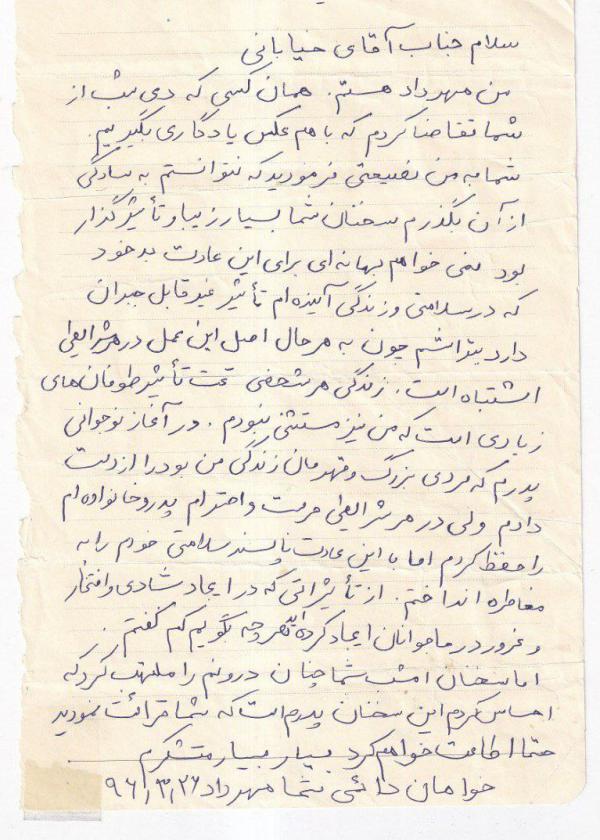 سلام جناب آقای خیابانی
من مهرداد هستم. همان کسی که دی شب از
شما تقاضا کردم که با هم عکس یادگاری بگیریم.
شما به من نصیحتی فرمودید که نتوانستم به سادگی
از آن بگذرم سخنان شما بسیار زیبا و تأثیرگذار
بود نمی خواهم بهانه ای برای این عادت بد خود
که در سلامتی و زندگی آینده ام تأثیر غیر قابل جبران
دارد بتراشم چون به هر حال اصل این عمل در هر شرایطی
اشتباه است. زندگی هر شخصی تحت تأثیر طوفان های
زیادی است که من نیز مستثنی نبودم. در آغاز نوجوانی
پدرم که مردی بزرگ و قهرمان زندگی من بود را از دست
دادم ولی در هر شرایطی حرمت و احترام پدر و خانواده ام
را حفظ کردم اما با این عادت ناپسند سلامتی خودم را به
مخاطره انداختم. از تأثیراتی که در ایجاد شادی و افتخار
و غرور در ما جوانان ایجاد کرده اید هر چه بگویم کم گفتم.
اما سخنان امشب شما چنان درونم را ملتهب کرد که
احساس کردم این سخنان پدرم است که شما قرائت نمودید
حتما اطاعت خواهم کرد بسیار بسیار متشکرم
خواهان دائمی شما مهرداد ۹۶/۳/۲۶